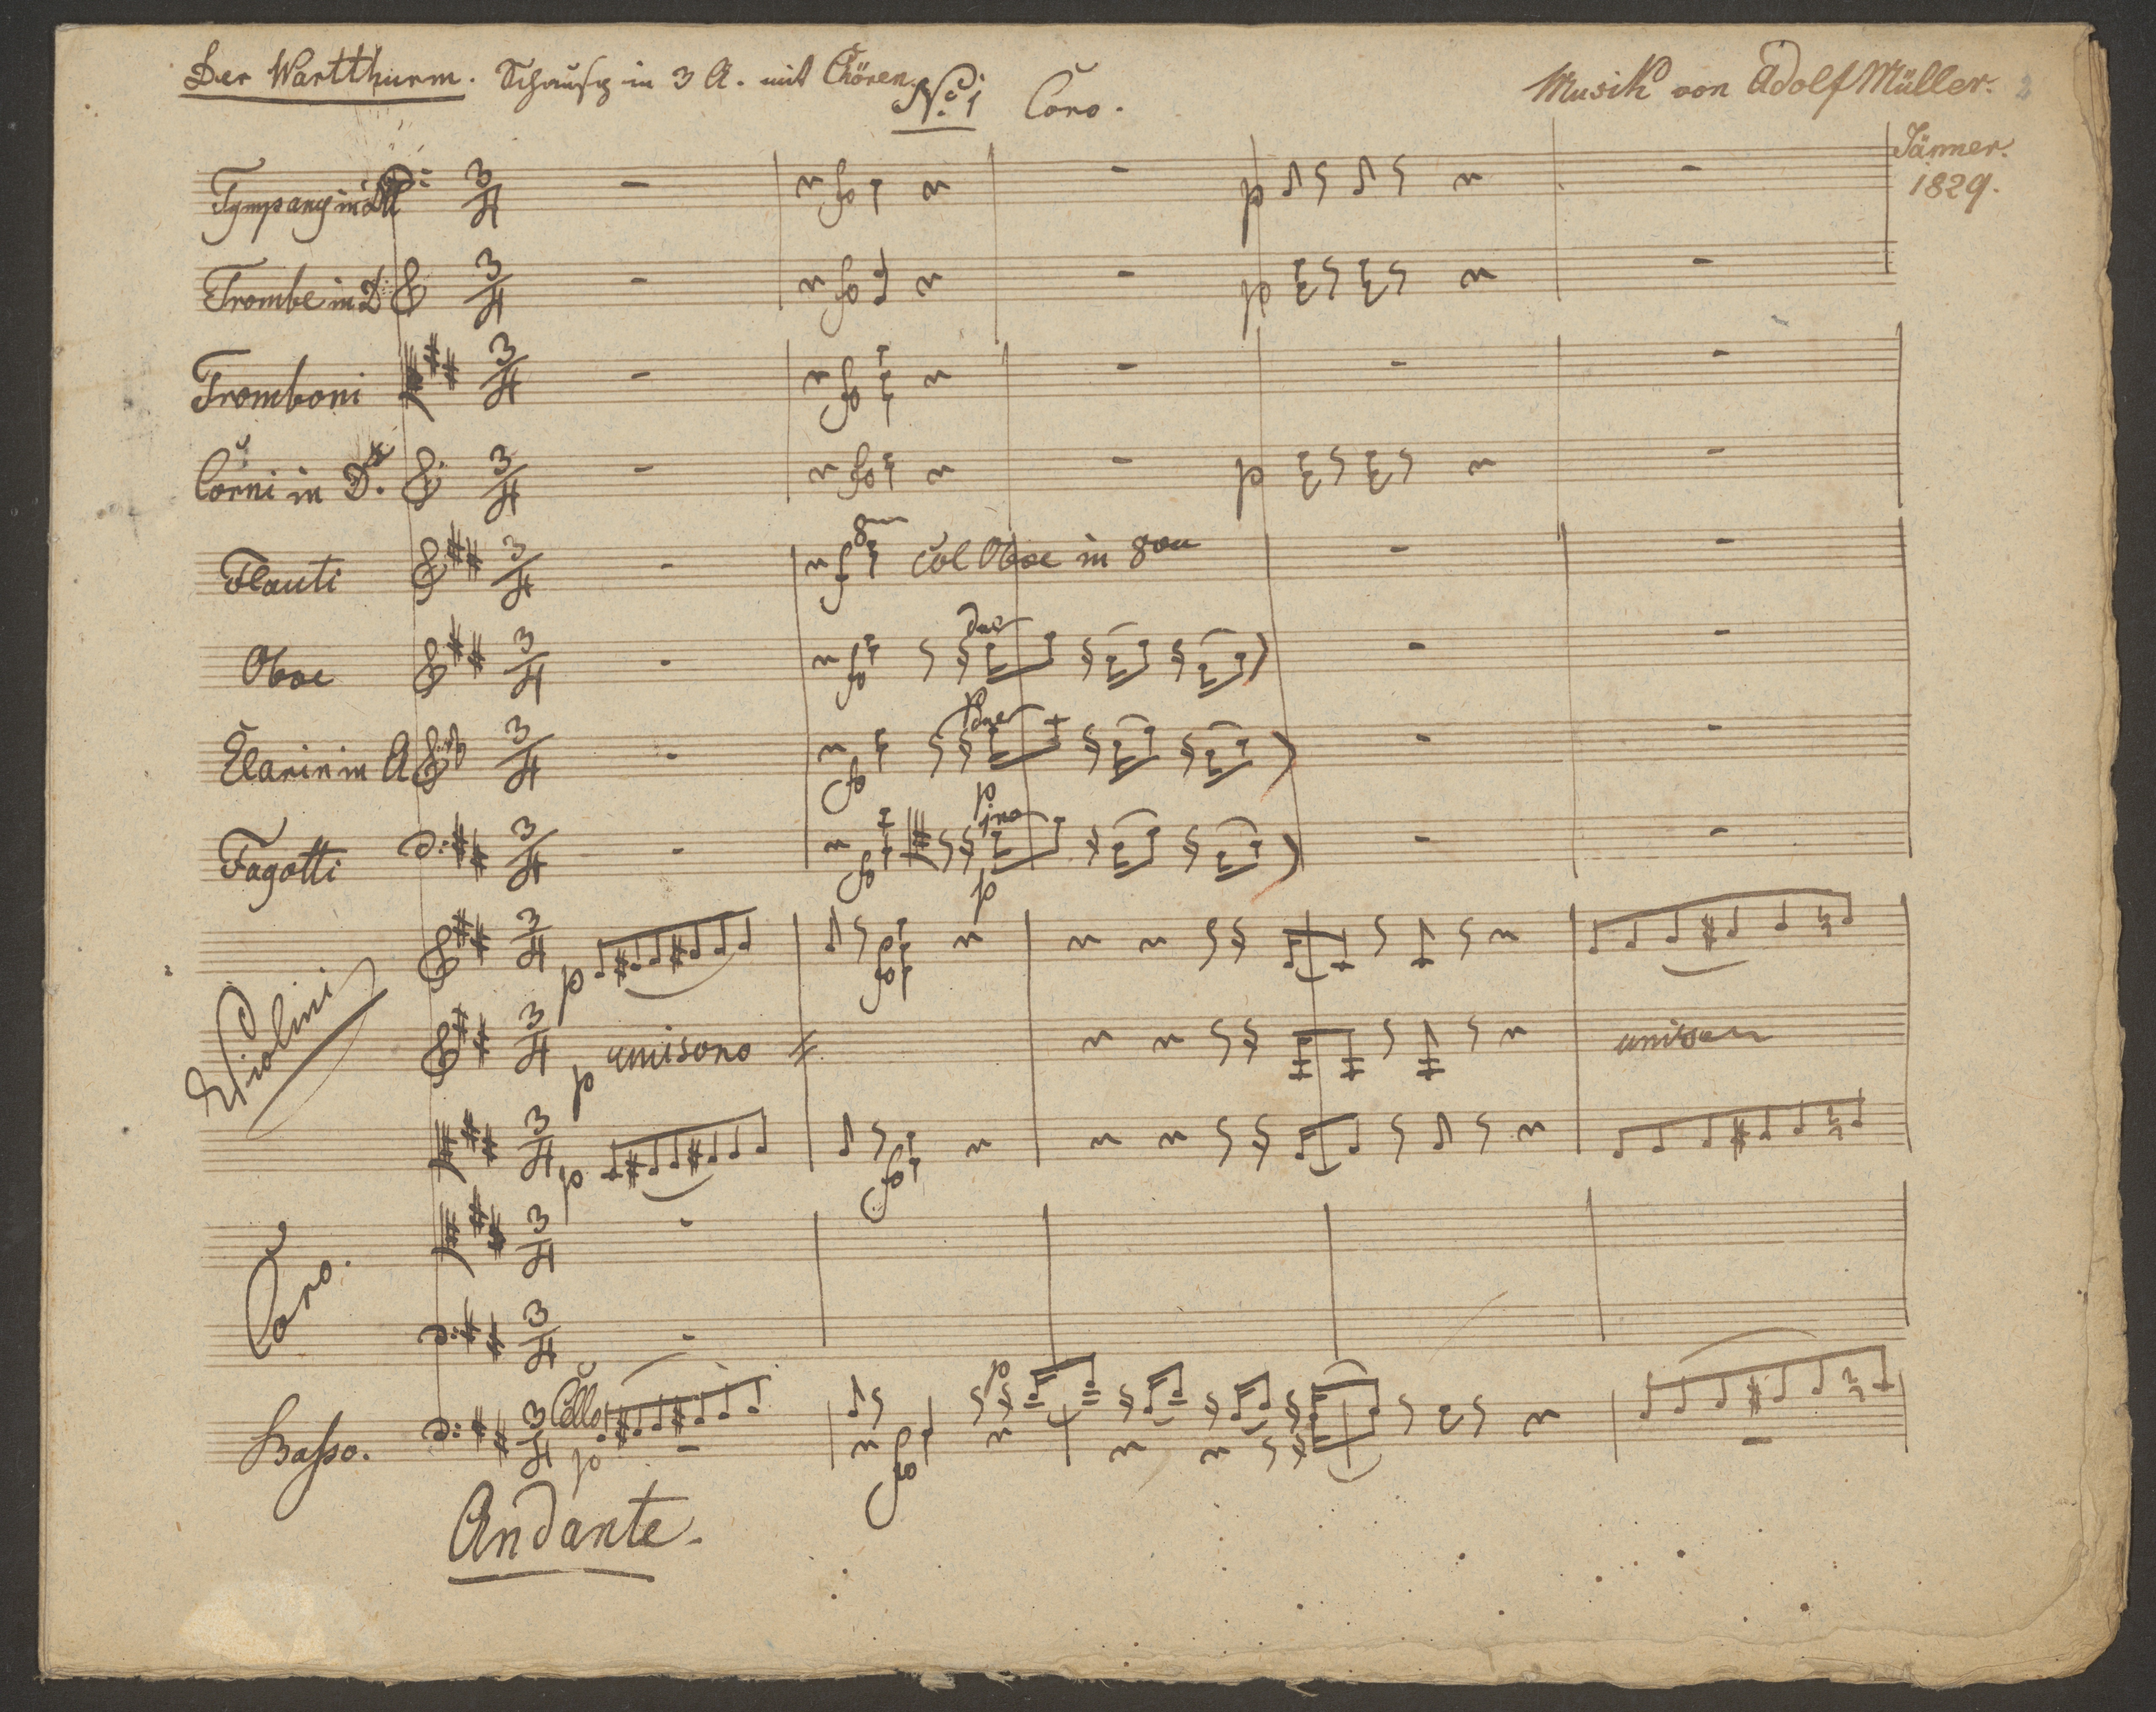 Der Wartthurm. Schausp in 3 A. mit Chören.
No. 1 Coro.
Musik von Adolf Müller. 2
Jänner.
1829.
Tympany in
Trombe in D
Tromboni
Corni in D.
Flauti
8va
col Oboe in 8va
Oboe
due
Clarin in A
due
Fagotti
p
imo
p
Violini
p unisono
unison
Coro.
Basso.
Cello
p
Andante.